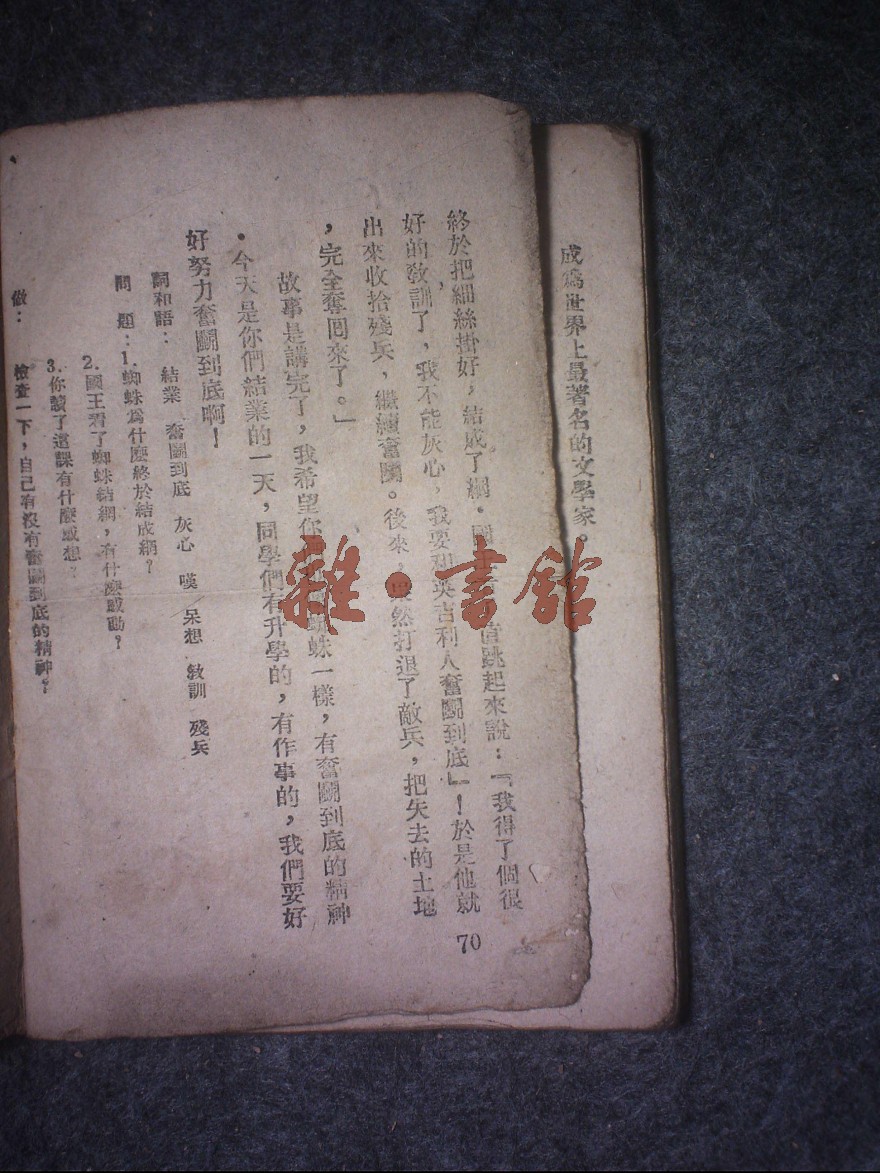 成爲世界上最著名的文學家。
終於把細絲掛好，結成了網。國　　　直跳起來說：「『我得了個很
好的敎訓了，我不能灰心，我要和英吉利人奮鬭到底」！於是他就
出來收拾殘兵，繼續奮鬭。後來，果然打退了敵兵，把失去的土地
，完全奪囘來了。」
故事是講完了，我希望你　　　蜘蛛一樣，有奮鬭到底的精神
。今天是你們結業的一天，同學們有升學的，有作事的，我們要好
好努力奮鬭到底啊！
詞和語：　結業　奮鬭到底　灰心　嘆　呆想　敎訓　殘兵
問　題：1.蜘蛛爲什麼終於結成網？
2.國王看了蜘蛛結網，有什麼感動？
3.你讀了這課有什麼感想？
做：　檢查一下，自己有沒有奮鬭到底的精神。
70
雜·書館